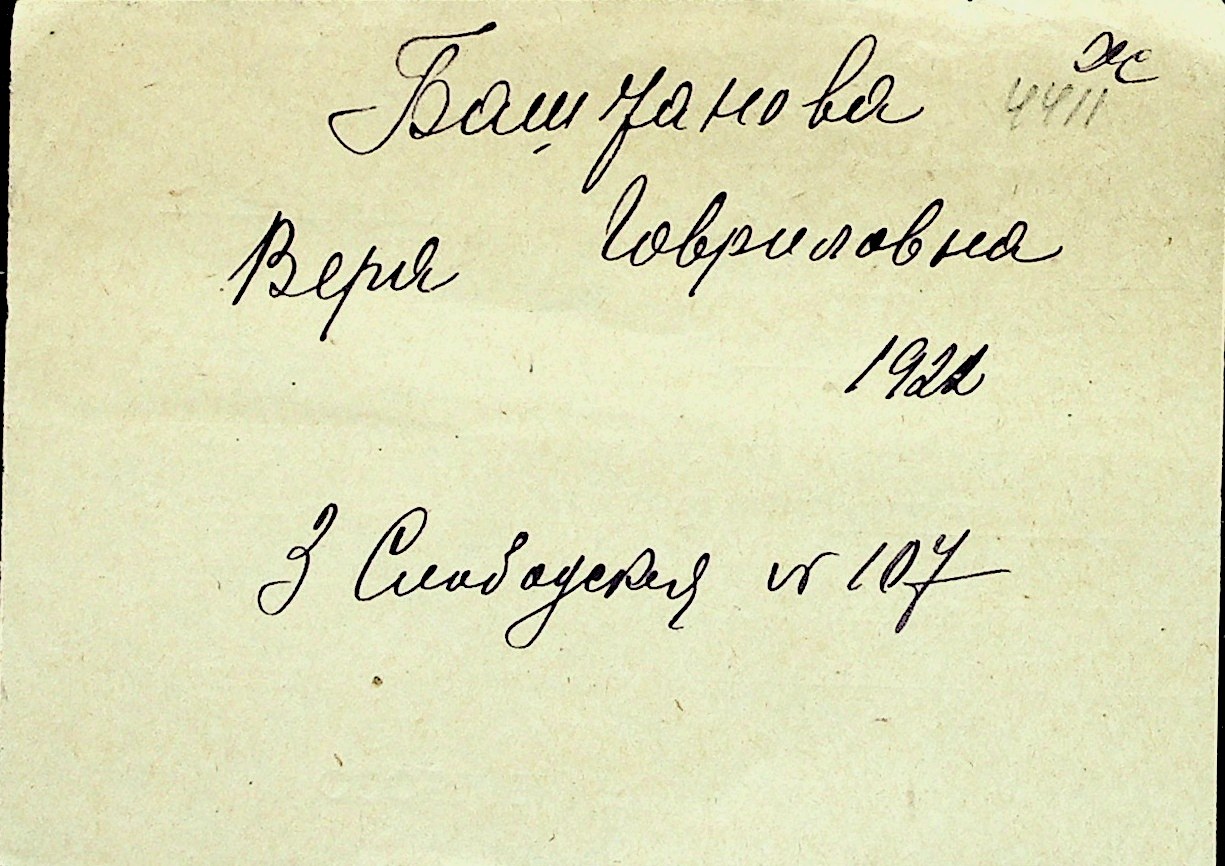 Баштанова
4411
Вера Гавриловна
1922
3 Слободская № 107